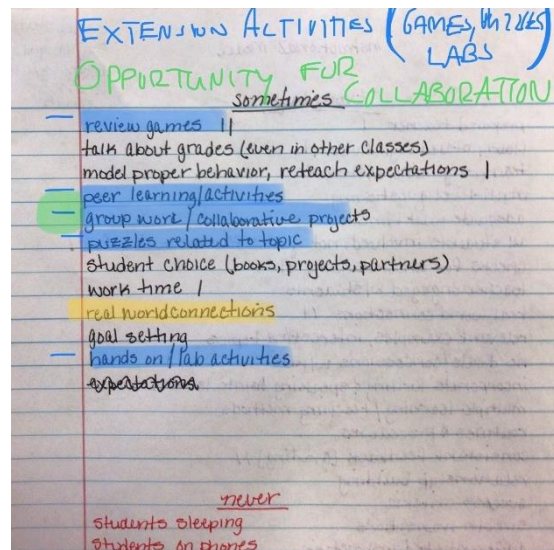 EXTENSION ACTIVITIES (GAMES, PUZZLES
LABS
OPPORTUNITY FOR
COLLABORATION
sometimes
review games ||
talk about grades (even in other classes)
model proper behavior, reteach expectations |
peer learning/activities
group work / collaborative projects
puzzles related to topic
student choice (books, projects, partners)
work time |
real world connections
goal setting
hands on / lab activities
expectations
never
students sleeping
students on phones